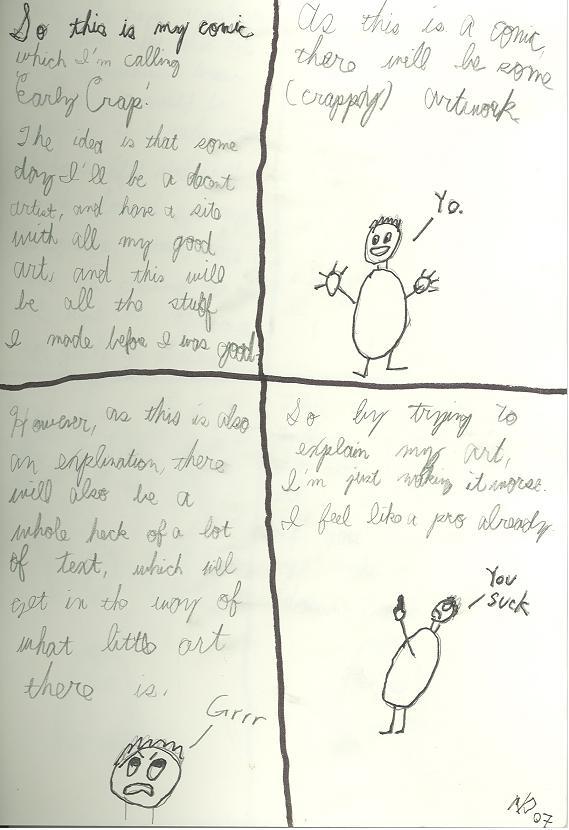 So this is my comic
which I'm calling
'Early Crap'.
The idea is that some
day I'll be a decent
artist, and have a site
with all my good
art, and this will
be all the stuff
I made before I was good.
As this is a comic,
there will be some
(crappy) artwork.
Yo.
However, as this is also
an explination, there
will also be a
whole heck of a lot
of text, which will
get in the way of
what little art
there is.
Grrr
So by trying to
explain my art,
I'm just making it worse.
I feel like a pro already.
You
suck
07